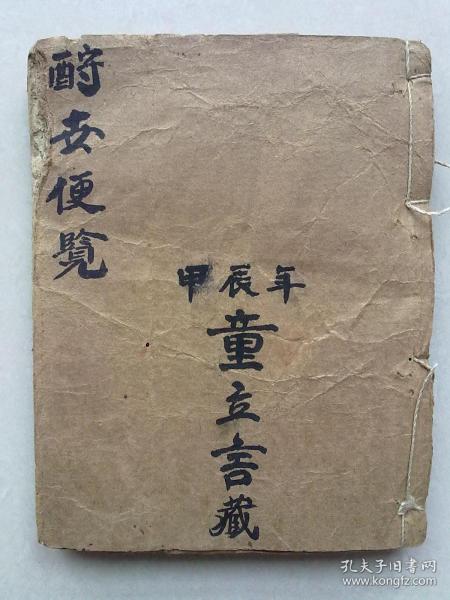 酧世便覽
甲辰年
童立言藏
孔夫子旧书网
www.kongfz.com